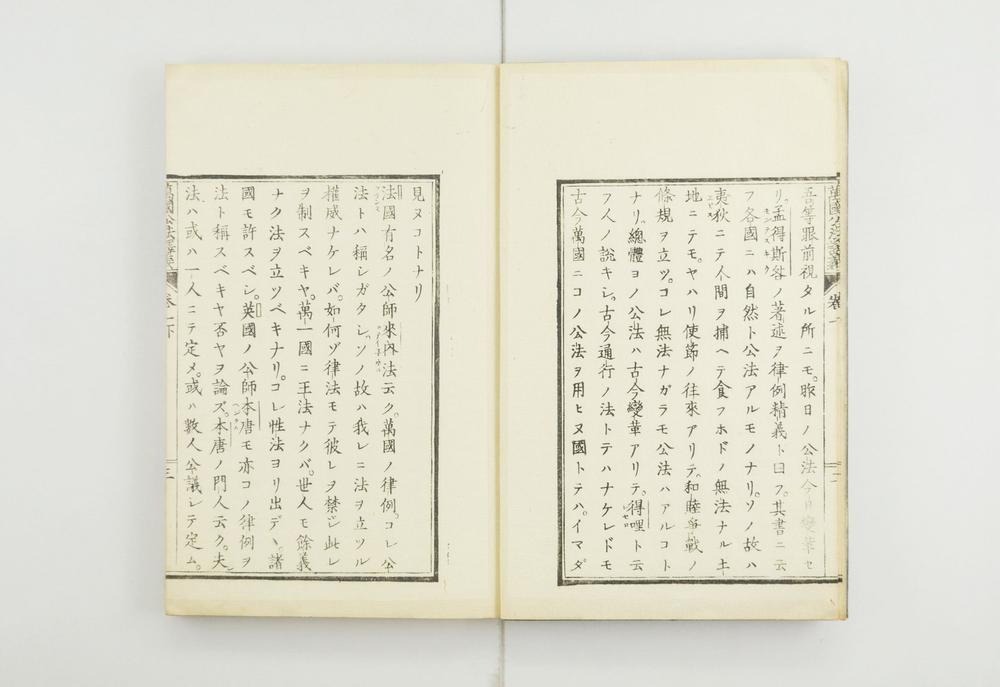 吾等眼前視タル所ニモ。昨日ノ公法今日變革セ
リ。孟得斯咎ノ著述ヲ律例精義ト曰フ。其書ニ云
フ各國ニハ自然ト公法アルモノナリ。ソノ故ハ
夷狄ニテ人間ヲ捕ヘテ食フホドノ無法ナル土
地ニテモ。ヤハリ使節ノ往來アリテ。和睦爭戰ノ
條規ヲ立ツ。コレ無法ナガラモ公法ハアルコト
ナリ。總體ヨノ公法ハ古今變革アリテ。得哩ト云
フ人ノ說キシ。古今通行ノ法トテハナケレドモ
古今萬國ニコノ公法ヲ用ヒヌ國トテハ。イマダ
見ヌコトナリ
法國有名ノ公師來內法云ク。萬國ノ律例。コレ公
法トハ稱シガタシ。ソノ故ハ我レニ法ヲ立ツル
權威ナケレバ。如何ゾ律法モテ彼レヲ禁ジ此レ
ヲ制スベキヤ。萬一國ニ王法ナクバ。世人モ餘義
ナク法ヲ立ツベキナリ。コレ性法ヨリ出デ、諸
國モ許スベシ。英國ノ公師本唐モ亦コノ律例ヲ
法ト稱スベキヤ否ヤヲ論ズ。本唐ノ門人云ク。夫
法ハ或ハ一人ニテ定メ。或ハ數人公議シテ定ム。
卷一下
三